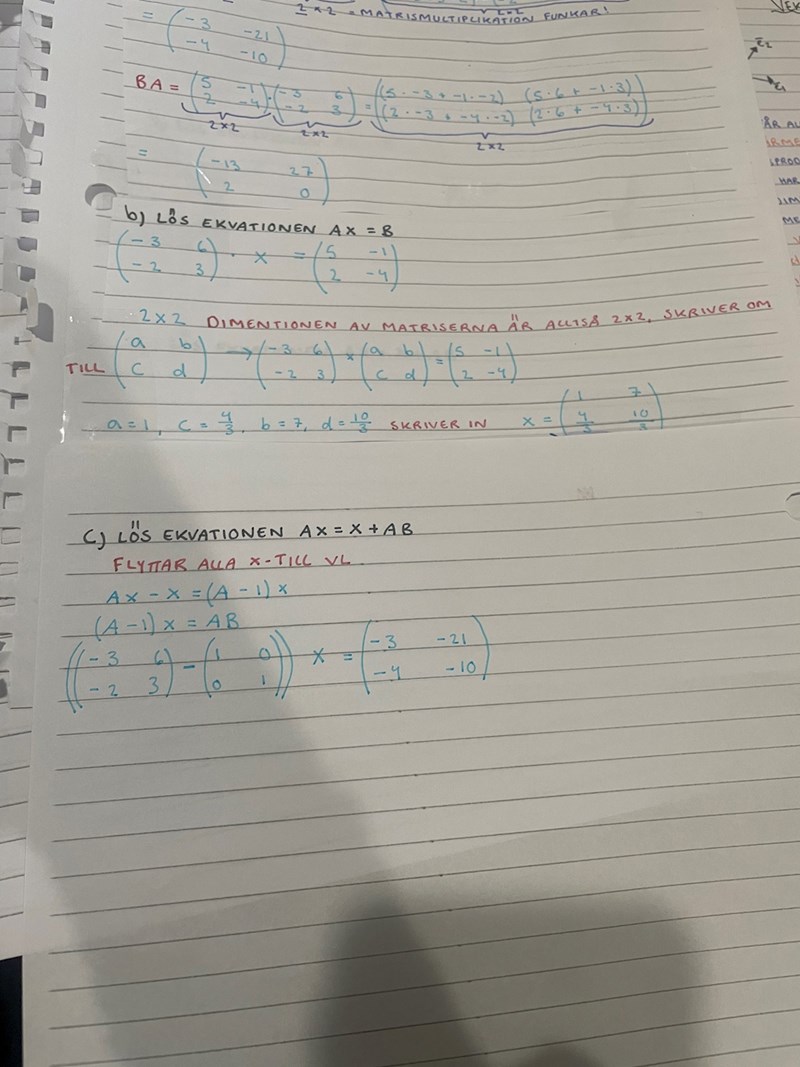 2×2 = MATRISMULTIPLIKATION FUNKAR!
= (-3 -21
-4 -10)
BA = (5 -1
2 -4) · (-3 6
-2 3) = ((5·-3+-1·-2) (5·6+-1·3)
(2·-3+-4·-2) (2·6+-4·3))
2×2 2×2 2×2
= (-13 27
2 0)
b) LÖS EKVATIONEN AX = B
(-3 6
-2 3) · X = (5 -1
2 -4)
2×2 DIMENTIONEN AV MATRISERNA ÄR ALLTSÅ 2×2, SKRIVER OM
TILL (a b
c d) → (-3 6
-2 3) × (a b
c d) = (5 -1
2 -4)
a = 1, c = 4/3, b = 7, d = 10/3 SKRIVER IN X = (1 7
4/3 10/3)
C) LÖS EKVATIONEN AX = X + AB
FLYTTAR ALLA X-TILL VL
AX - X = (A - 1) X
(A - 1) X = AB
((-3 6
-2 3) - (1 0
0 1)) X = (-3 -21
-4 -10)